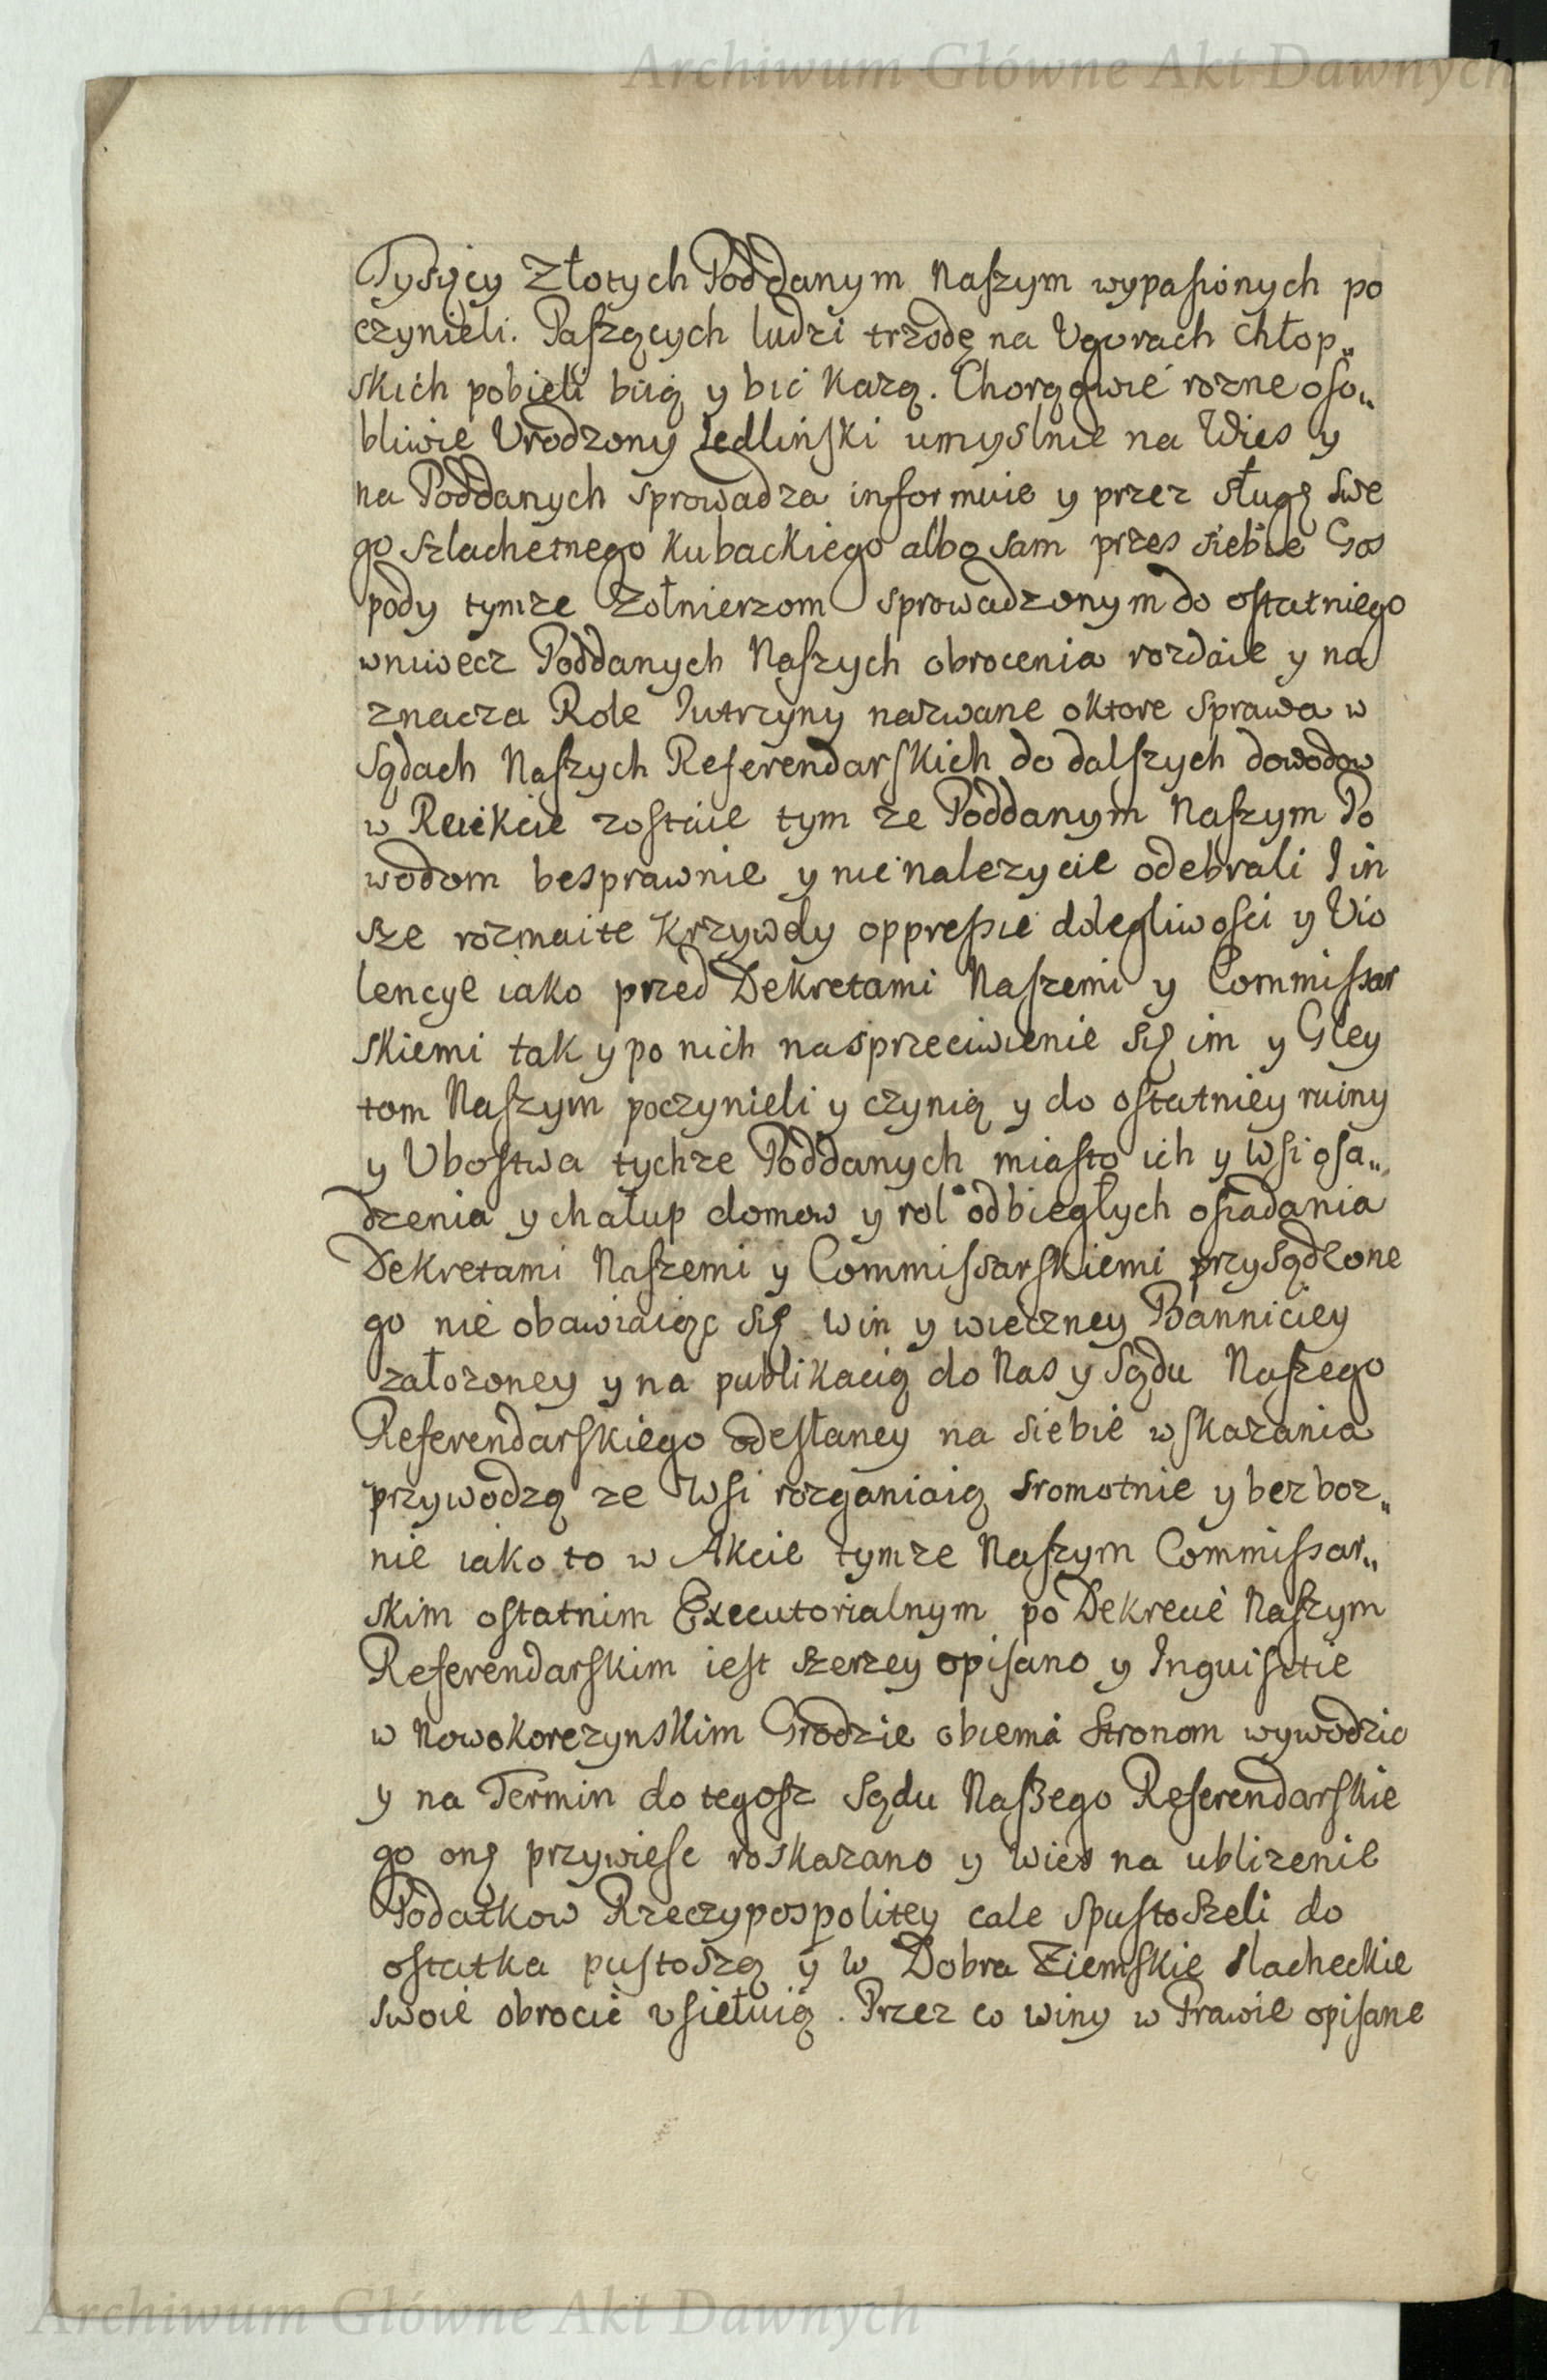 Archiwum Główne Akt Dawnych
Tysięcy Złotych Poddanym Naszym wypasionych po
czynieli. Paszących ludzi trzodę na Ugorach Chłop„
skich pobieli biią y bić karzą. Chorągwie rozne oso„
bliwie Urodzony Jedliński umyslnie na Wies y
na Poddanych sprowadza informuie y przez sługę swe
go szlachetnego Kubackiego albo sam przes siebie Gos
pody tymze Zołnierzom sprowadzonym do ostatniego
wniwecz Poddanych Naszych obrocenia rozdaie y na
znacza Role Jutrzyny nazwane oktore sprawa w
Sądach Naszych Referendarskich do dalszych dowodow
w Reiekcie zostaie tym ze Poddanym Naszym Po
wodom besprawnie y nienalezycie odebrali I in
sze rozmaite krzywdy oppressie dolegliwości y Vio
lencye iako przed Dekretami Naszemi y Commissar
skiemi tak y po nich nasprzeciwienie się im y Gley
tom Naszym poczynieli y czynią y do ostatniey ruiny
y Ubostwa tychze Poddanych miasto ich y Wsi osa„
dzenia y chałup domow y rol odbiegłych osiadania
Dekretami Naszemi y Commissarskiemi przysądzone
go nie obawiaiąc się win y wieczney Banniciey
załozoney y na publikacią do Nas y Sądu Naszego
Referendarskiego odesłaney na siebie wskazania
przywodzą ze Wsi rozganiaią sromotnie y bezboz„
nie iako to w Akcie tymze Naszym Commissar„
skim ostatnim Executorialnym po Dekrecie Naszym
Referendarskim iest szerzey opisano y Inquisitie
w Nowokorczynskim Grodzie obiema Stronom wywodzic
y na Termin do tegosz Sądu Naszego Referendarskie
go onę przywiesc roskazano y wies na ublizenie
Podatkow Rzeczypospolitey cale spustoszeli do
ostatka pustoszą y w Dobra Ziemskie slacheckie
swoie obrocie usiełuią. Przez co winy w Prawie opisane
Archiwum Główne Akt Dawnych